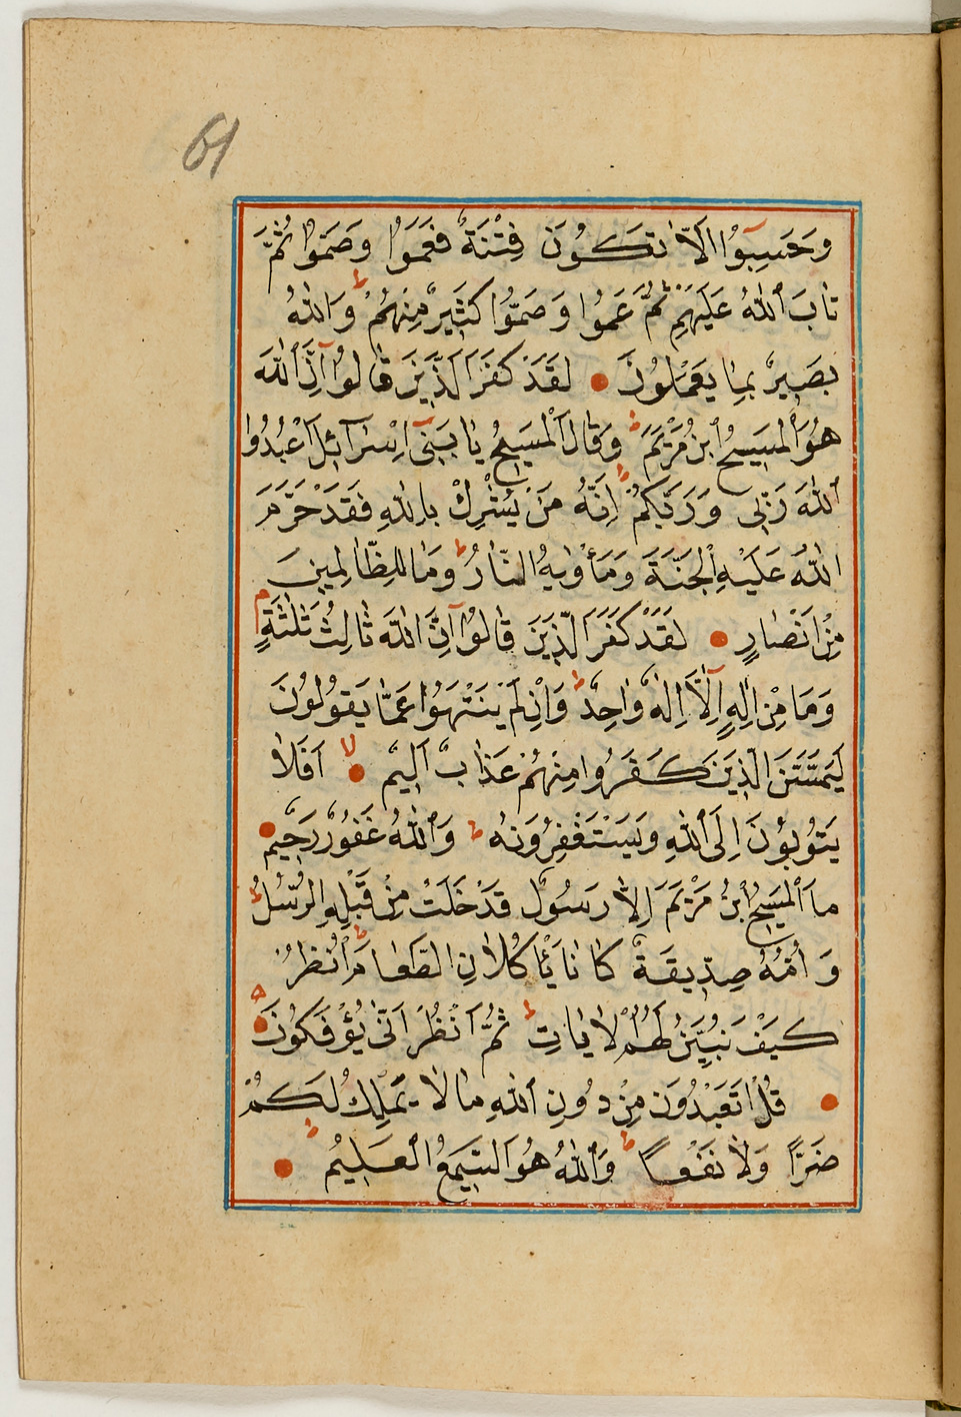 61
وَحَسِبُوا اَلَّا تَكُونَ فِتْنَةٌ فَعَمُوا وَصَمُّوا ثُمَّ
تَابَ اللهُ عَلَيْهِمْ ثُمَّ عَمُوا وَصَمُّوا كَثِيرٌ مِنْهُمْ ط وَاللهُ
بَصِيرٌ بِمَا يَعْمَلُونَ لَقَدْ كَفَرَ الَّذِينَ قَالُوا اِنَّ اللهَ
هُوَ الْمَسِيحُ ابْنُ مَرْيَمَ ط وَقَالَ الْمَسِيحُ يَا بَنِى اِسْرَآئِلَ اعْبُدُوا
اللهَ رَبِّى وَرَبَّكُمْ ط اِنَّهُ مَنْ يُشْرِكْ بِاللهِ فَقَدْ حَرَّمَ
اللهُ عَلَيْهِ الْجَنَّةَ وَمَأْوٰيهُ النَّارُ ط وَمَا لِلظَّالِمِينَ
مِنْ اَنْصَارٍ لَقَدْ كَفَرَ الَّذِينَ قَالُوا اِنَّ اللهَ ثَالِثُ ثَلٰثَةٍ م
وَمَا مِنْ اِلٰهٍ اِلَّا اِلٰهٌ وَاحِدٌ ط وَاِنْ لَمْ يَنْتَهُوا عَمَّا يَقُولُونَ
لَيَمَسَّنَّ الَّذِينَ كَفَرُوا مِنْهُمْ عَذَابٌ اَلِيمٌ لا اَفَلَا
يَتُوبُونَ اِلَى اللهِ وَيَسْتَغْفِرُونَهُ ط وَاللهُ غَفُورٌ رَحِيمٌ
مَا الْمَسِيحُ ابْنُ مَرْيَمَ اِلَّا رَسُولٌ قَدْ خَلَتْ مِنْ قَبْلِهِ الرُّسُلُ ط
وَاُمُّهُ صِدِّيقَةٌ كَانَا يَأْكُلَانِ الطَّعَامَ ط اُنْظُرْ
كَيْفَ نُبَيِّنُ لَهُمُ الْاٰيَاتِ ط ثُمَّ انْظُرْ اَنّٰى يُؤْفَكُونَ
قُلْ اَتَعْبُدُونَ مِنْ دُونِ اللهِ مَا لَا يَمْلِكُ لَكُمْ
ضَرًّا وَلَا نَفْعًا ط وَاللهُ هُوَ السَّمِيعُ الْعَلِيمُ